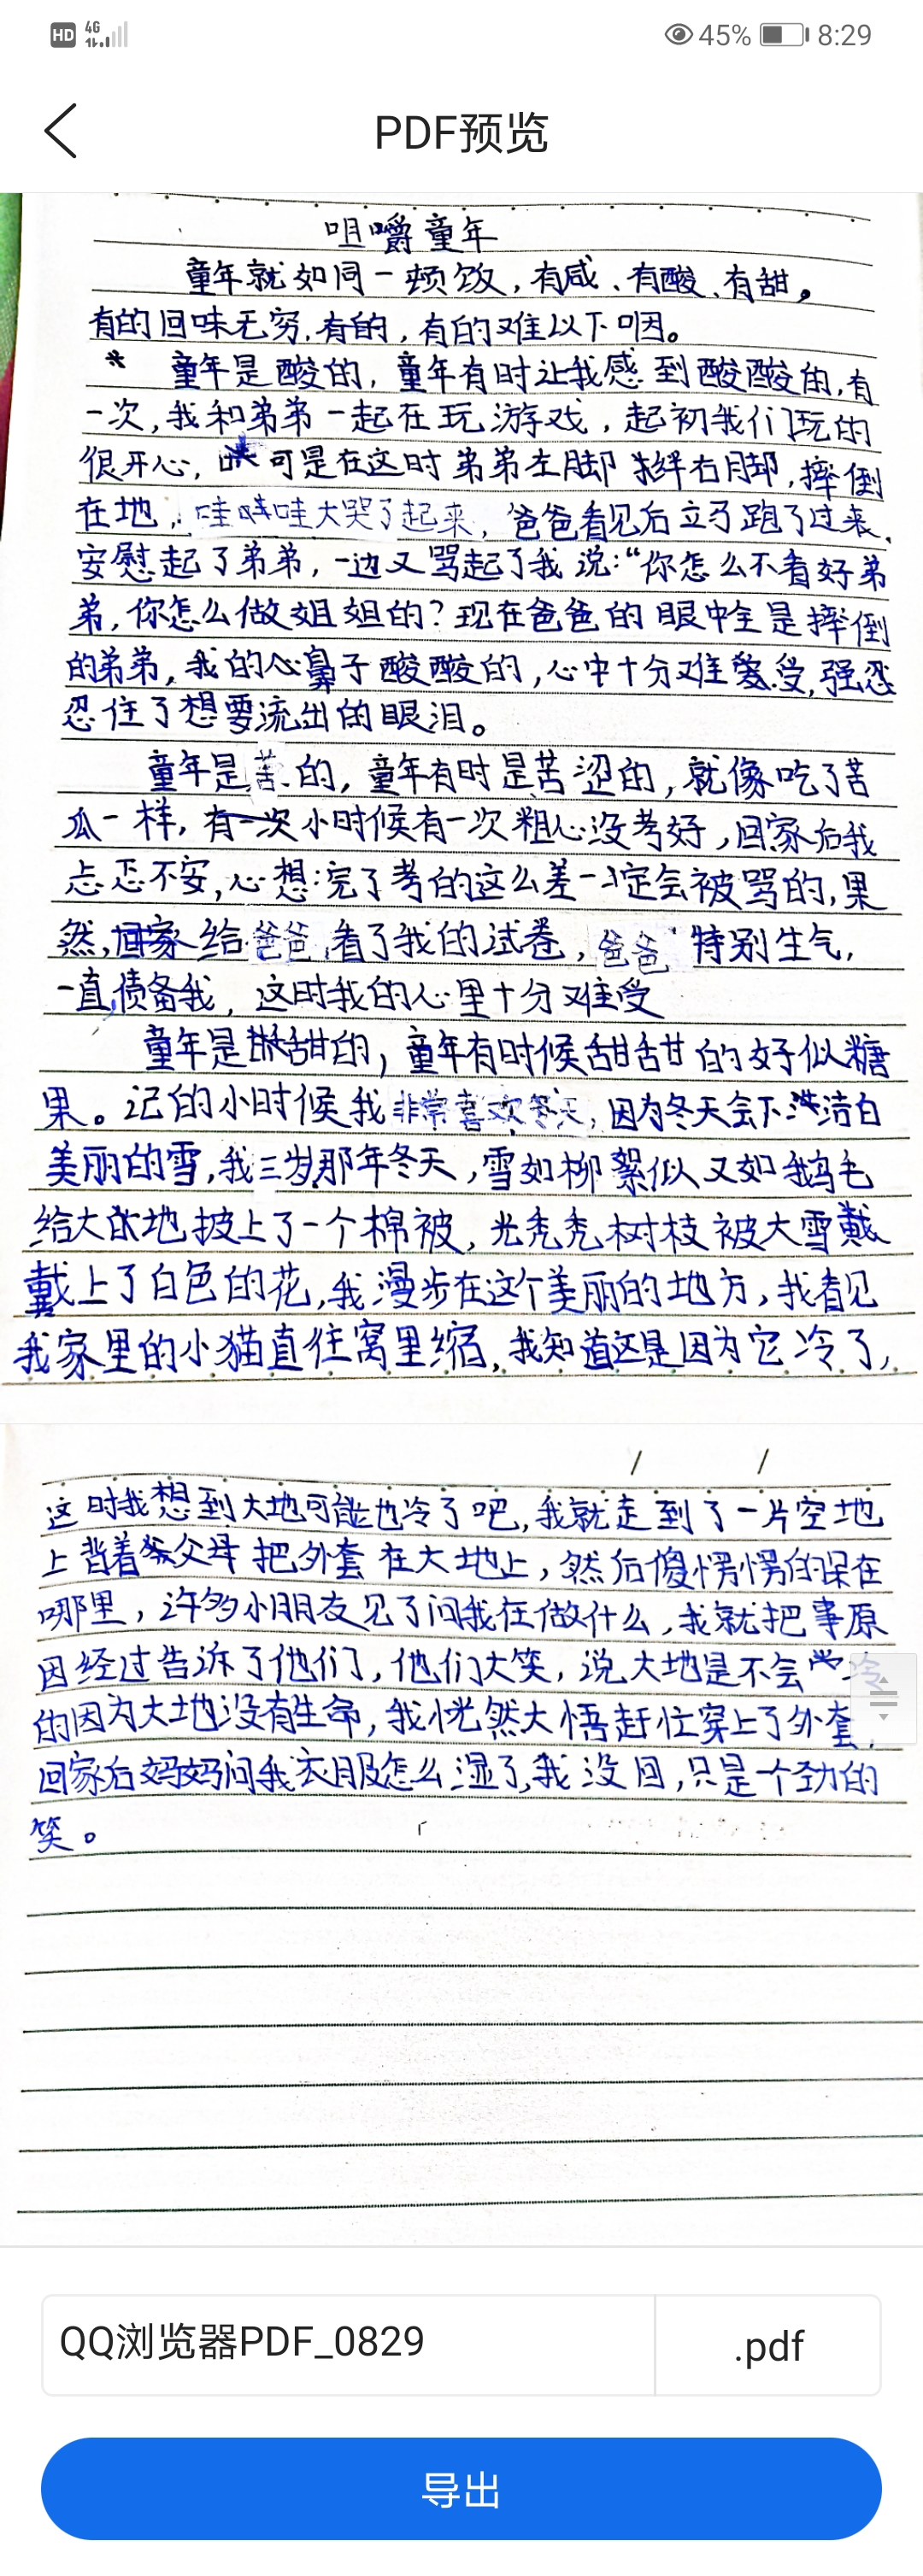 HD 4G 45% 8:29
PDF预览
咀嚼童年
童年就如同一顿饭,有咸、有酸、有甜。
有的回味无穷,有的,有的难以下咽。
童年是酸的,童年有时让我感到酸酸的,有
一次,我和弟弟一起在玩游戏,起初我们玩的
很开心,可是在这时弟弟左脚绊右脚,摔倒
在地,哇哇哇大哭了起来,爸爸看见后立马跑了过来,
安慰起了弟弟,一边又骂起了我说:“你怎么不看好弟
弟,你怎么做姐姐的?现在爸爸的眼中全是摔倒
的弟弟,我的心鼻子酸酸的,心中十分难受,强忍
忍住了想要流出的眼泪。
童年是苦的,童年有时是苦涩的,就像吃了苦
瓜一样,有一次小时候有一次粗心没考好,回家后我
忐忑不安,心想:完了考的这么差一定会被骂的,果
然,回家给爸爸看了我的试卷,爸爸特别生气,
一直责备我,这时我的心里十分难受
童年是甜的,童年有时候甜甜的好似糖
果。记的小时候我非常喜欢冬天,因为冬天会下洁白
美丽的雪,我三岁那年冬天,雪如柳絮似又如鹅毛
给大地披上了一个棉被,光秃秃树枝被大雪戴
戴上了白色的花,我漫步在这个美丽的地方,我看见
我家里的小猫直往窝里缩,我知道这是因为它冷了,
这时我想到大地可能也冷了吧,我就走到了一片空地
上背着父母把外套在大地上,然后傻愣愣的呆在
哪里,许多小朋友见了问我在做什么,我就把事原
因经过告诉了他们,他们大笑,说大地是不会冷
的因为大地没有生命,我恍然大悟赶忙穿上了外套,
回家后妈妈问我衣服怎么湿了,我没回,只是一个劲的
笑。
QQ浏览器PDF_0829 .pdf
导出